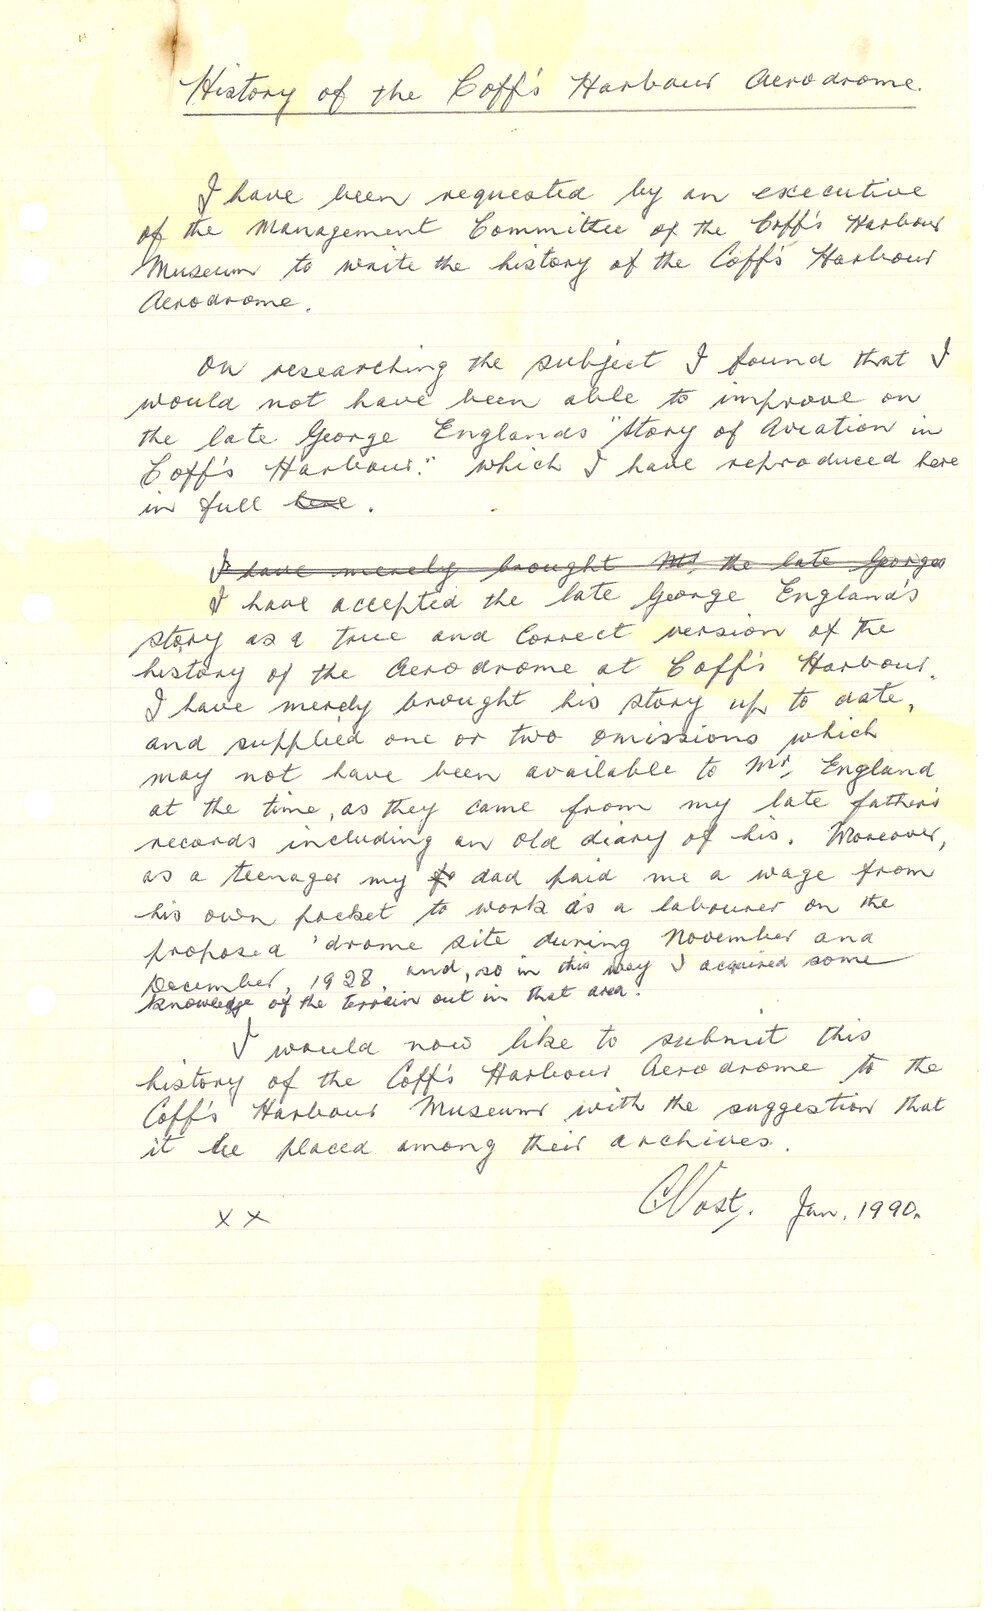 History of the Coff's Harbour Aerodrome.
I have been requested by an executive
of the Management Committee of the Coff's Harbour
Museum to write the history of the Coff's Harbour
Aerodrome.
On researching the subject I found that I
would not have been able to improve on
the late George Englands "Story of Aviation in
Coff's Harbour." which I have reproduced here
in full here.
I have merely brought Mr. the late Georges
I have accepted the late George England's
story as a true and correct version of the
history of the Aerodrome at Coff's Harbour.
I have merely brought his story up to date,
and supplied one or two omissions which
may not have been available to Mr. England
at the time, as they came from my late father's
records including an old diary of his. Moreover,
as a teenager my fa dad paid me a wage from
his own pocket to work as a labourer on the
proposed 'drome site during November and
December, 1928, and, so in this way I acquired some
knowledge of the terrain out in that area.
I would now like to submit this
history of the Coff's Harbour Aerodrome to the
Coff's Harbour Museum with the suggestion that
it be placed among their archives.
CVost. Jan. 1990.
x x